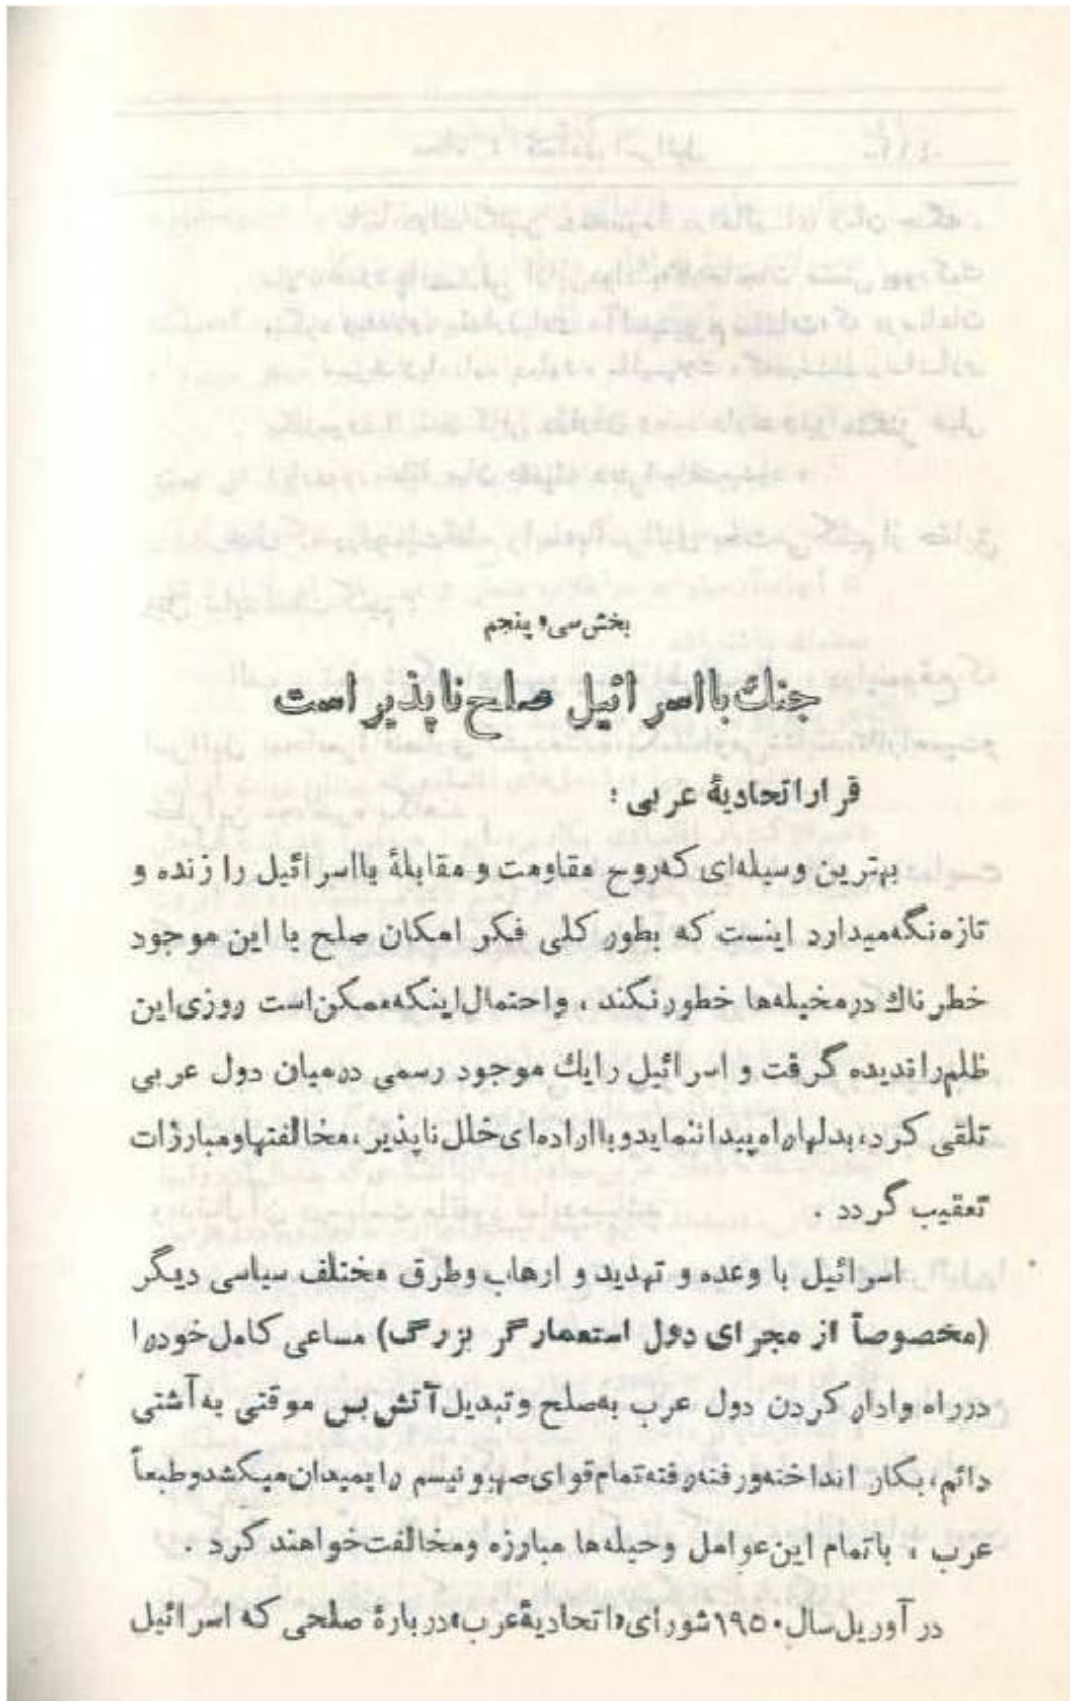 بخش سی و پنجم
جنك با اسرائیل صلح ناپذیر است
قرار اتحادیهٔ عربی :
بهترین وسیله‌ای که روح مقاومت و مقابلهٔ بااسرائیل را زنده و
تازه نگه میدارد اینست که بطور کلی فکر امکان صلح با این موجود
خطرناك در مخیله‌ها خطور نکند ، و احتمال اینکه ممکن است روزی این
ظلم را ندیده گرفت و اسرائیل را یك موجود رسمی در میان دول عربی
تلقی کرد، بدلها راه پیدا ننماید و با اراده‌ای خلل ناپذیر، مخالفتها و مبارزات
تعقیب گردد .
اسرائیل با وعده و تهدید و ارهاب و طرق مختلف سیاسی دیگر
(مخصوصاً از مجرای دول استعمارگر بزرگ) مساعی کامل خود را
در راه وادار کردن دول عرب به صلح و تبدیل آتش بس موقتی به آشتی
دائم، بکار انداخته و رفته رفته تمام قوای صهیونیسم را بمیدان میکشد و طبعاً
عرب ، با تمام این عوامل و حیله‌ها مبارزه و مخالفت خواهند کرد .
در آوریل سال ۱۹۵۰ شورای «اتحادیهٔ عرب» دربارهٔ صلحی که اسرائیل